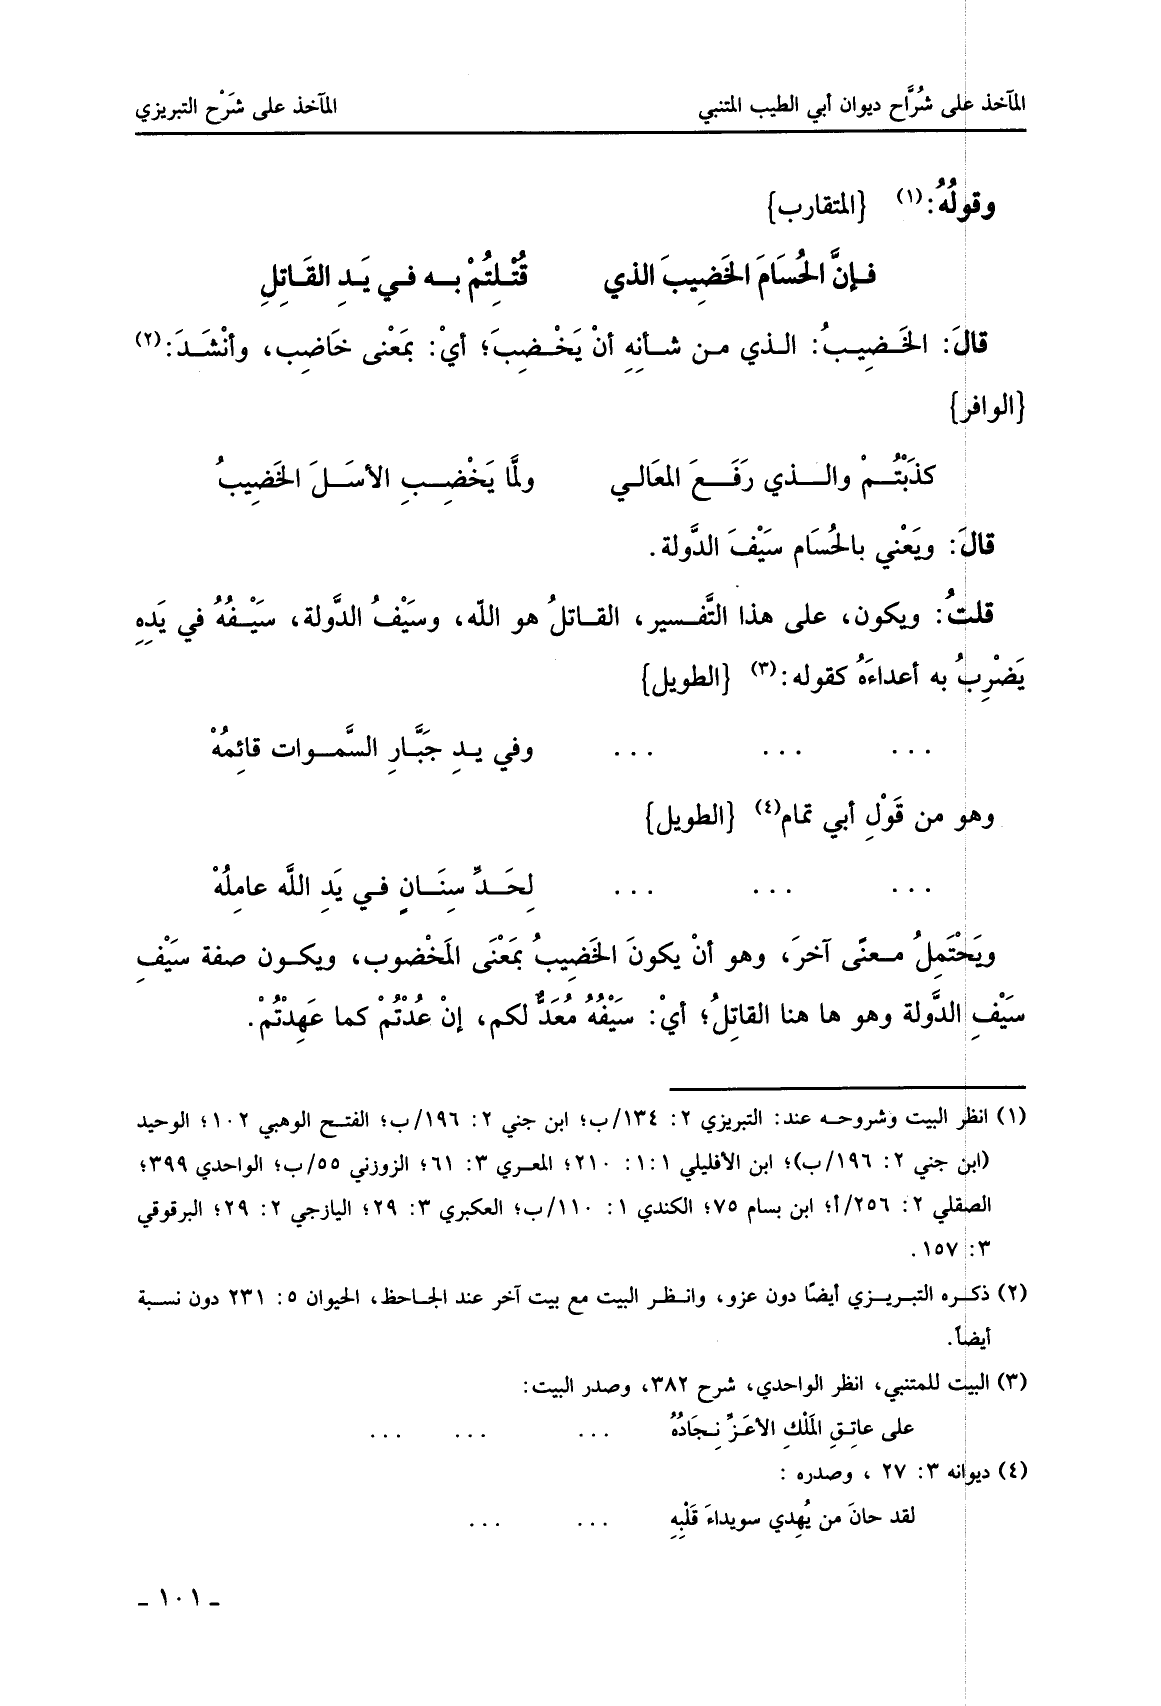 المآخذ على شُرَّاح ديوان أبي الطيب المتنبي المآخذ على شَرْح التبريزي
وقولُهُ:(١) {المتقارب}
فإنَّ الحُسَامَ الخَضيبَ الذي قُتْلِتُمْ به في يَدِ القَاتِلِ
قالَ: الخَضيبُ: الذي من شأنِهِ أنْ يَخْضِبَ؛ أيْ: بمَعْنى خَاضِب، وأنْشَدَ:(٢)
{الوافر}
كذَبْتُمْ والذي رَفَعَ المعَالي ولمَّا يَخْضِبِ الأسَلَ الخَضيبُ
قالَ: ويَعْني بالحُسَام سَيْفَ الدَّولة.
قلتُ: ويكون، على هذا التَّفسير، القاتلُ هو الله، وسَيْفُ الدَّولة، سَيْفُهُ في يَدِهِ
يَضْرِبُ به أعداءَهُ كقوله:(٣) {الطويل}
... ... ... وفي يدِ جَبَّارِ السَّموات قائِمُهْ
وهو من قَوْلِ أبي تمام(٤) {الطويل}
... ... ... لِحَدِّ سِنَانٍ في يَدِ اللَّه عامِلُهْ
ويَحْتَمِلُ معنًى آخرَ، وهو أنْ يكونَ الخَضيبُ بمَعْنَى المَخْضوب، ويكون صفة سَيْفِ
سَيْفِ الدَّولة وهو ها هنا القاتِلُ؛ أيْ: سَيْفُهُ مُعَدٌّ لكم، إنْ عُدْتُمْ كما عَهِدْتُمْ.
(١) انظر البيت وشروحه عند: التبريزي ٢: ١٣٤/ب؛ ابن جني ٢: ١٩٦/ب؛ الفتح الوهبي ١٠٢؛ الوحيد
(ابن جني ٢: ١٩٦/ب)؛ ابن الأفليلي ١:١: ٢١٠؛ المعري ٣: ٦١؛ الزوزني ٥٥/ب؛ الواحدي ٣٩٩؛
الصقلي ٢: ٢٥٦/أ؛ ابن بسام ٧٥؛ الكندي ١: ١١٠/ب؛ العكبري ٣: ٢٩؛ اليازجي ٢: ٢٩؛ البرقوقي
٣: ١٥٧.
(٢) ذكره التبريزي أيضًا دون عزو، وانظر البيت مع بيت آخر عند الجاحظ، الحيوان ٥: ٢٣١ دون نسبة
أيضاً.
(٣) البيت للمتنبي، انظر الواحدي، شرح ٣٨٢، وصدر البيت:
على عاتِقِ المَلْكِ الأعَزِّ نِجَادُهُ ... ... ...
(٤) ديوانه ٣: ٢٧ ، وصدره :
لقد حانَ من يُهدي سويداءَ قَلْبِهِ ... ...
ـ ١٠١ ـ